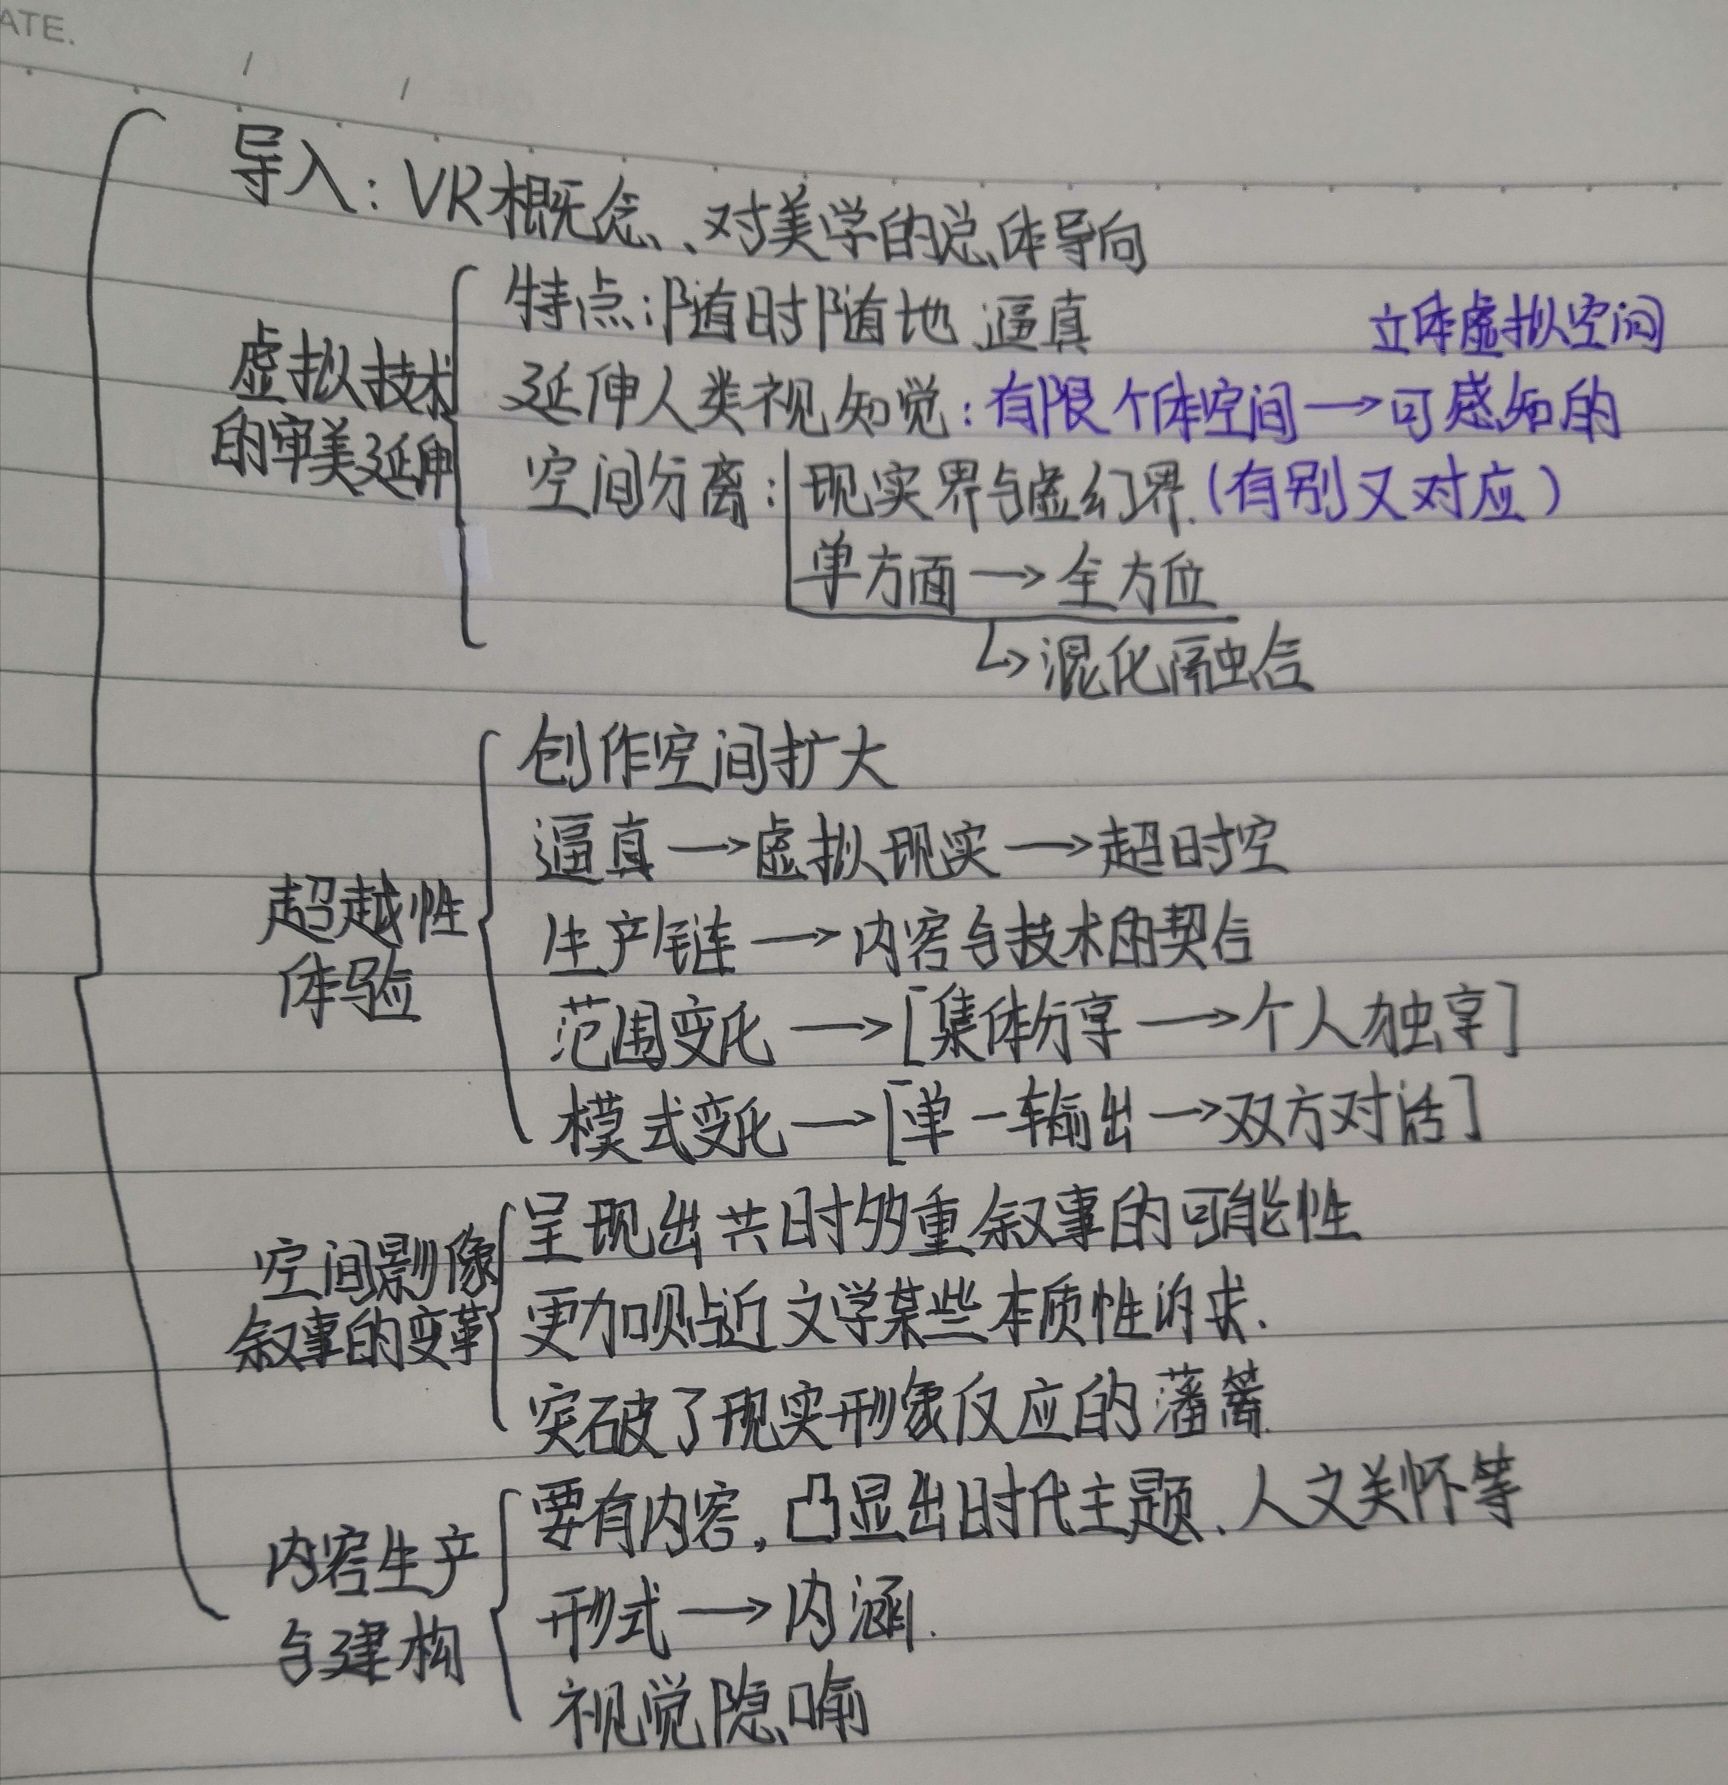 ATE.
导入：VR概念、对美学的总体导向
虚拟技术
的审美延伸
特点：随时随地 逼真
立体虚拟空间
延伸人类视知觉：有限个体空间→可感知的
空间分离：现实界与虚幻界.（有别又对应）
单方面→全方位
↳混化融合
超越性
体验
创作空间扩大
逼真→虚拟现实→超时空
生产链→内容与技术的契合
范围变化→[集体分享→个人独享]
模式变化→[单一输出→双方对话]
空间影像
叙事的变革
呈现出共时多重叙事的可能性
更加贴近文学某些本质性诉求.
突破了现实形象反应的藩篱.
内容生产
与建构
要有内容，凸显出时代主题、人文关怀等
形式→内涵.
视觉隐喻